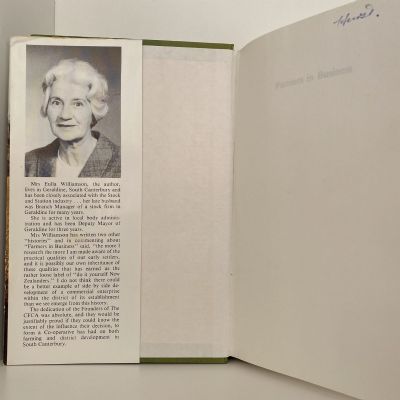 Mrs Eulla Williamson, the author,
lives in Geraldine, South Canterbury and
has been closely associated with the Stock
and Station industry . . . her late husband
was Branch Manager of a stock firm in
Geraldine for many years.
She is active in local body adminis-
tration and has been Deputy Mayor of
Geraldine for three years.
Mrs Williamson has written two other
"histories" and in commenting about
"Farmers in Business" said, "the more I
research the more I am made aware of the
practical qualities of our early settlers,
and it is possibly our own inheritance of
these qualities that has earned us the
rather loose label of "do it yourself New
Zealanders." I do not think there could
be a better example of side by side de-
velopment of a commercial enterprise
within the district of its establishment
than we see emerge from this history.
The dedication of the Founders of The
CFCA was absolute, and they would be
justifiably proud if they could know the
extent of the influence their decision, to
form a Co-operative has had on both
farming and district development in
South Canterbury.
Farmers in Business